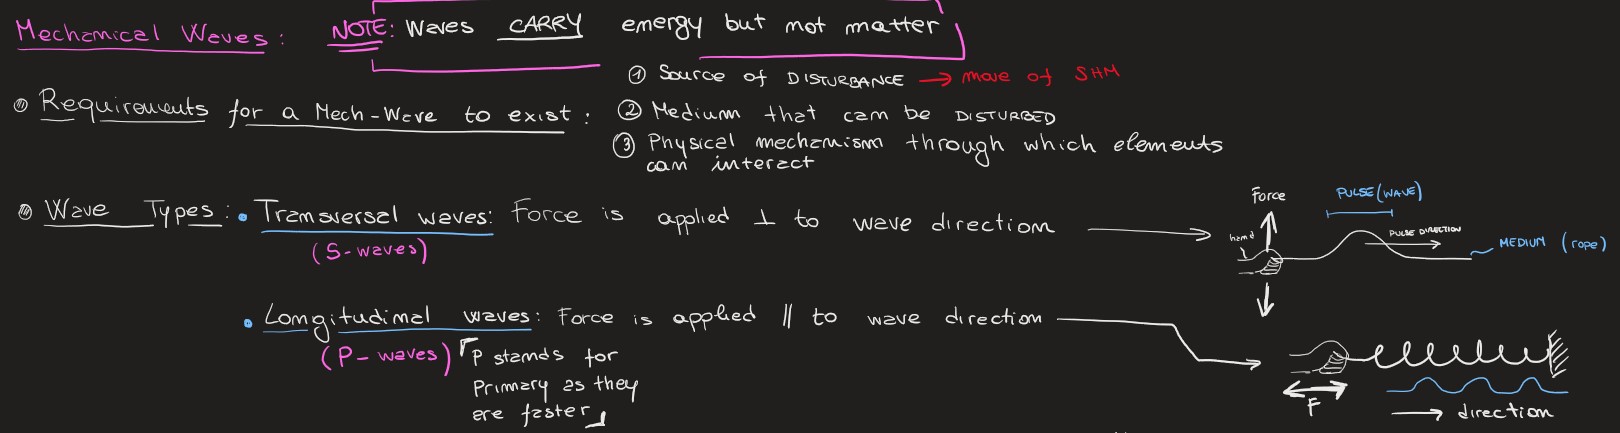 Mechanical Waves: NOTE: Waves CARRY energy but not matter
① Source of DISTURBANCE → move of SHM
Requirements for a Mech-Wave to exist: ② Medium that can be DISTURBED
③ Physical mechanism through which elements
can interact
Wave Types: • Transversal waves: Force is applied ⊥ to wave direction
(S-waves)
Force
PULSE (WAVE)
hand
PULSE DIRECTION
MEDIUM (rope)
• Longitudinal waves: Force is applied || to wave direction
(P-waves) P stands for
Primary as they
are faster
F
→ direction